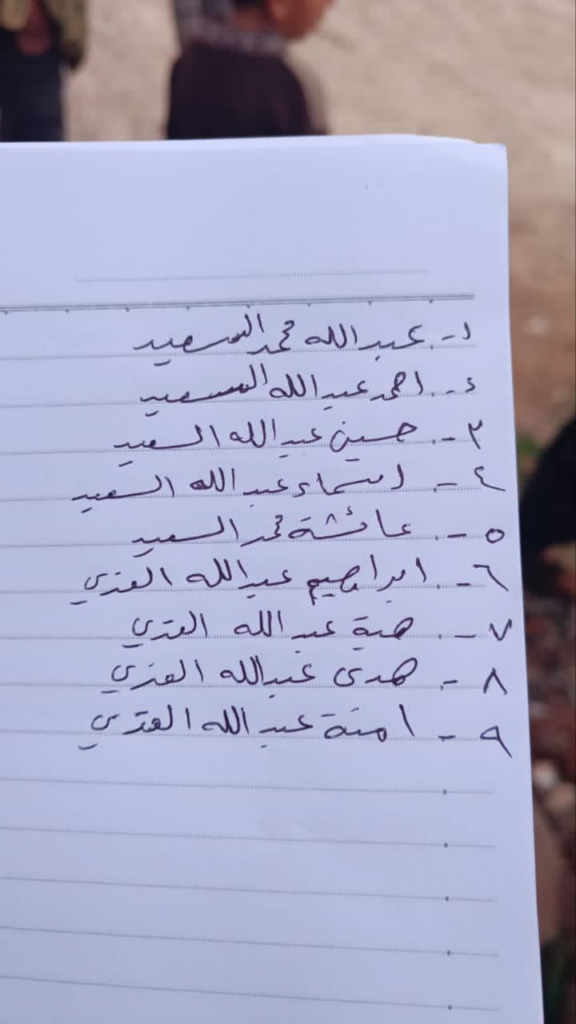 ١- عبد الله محمد السعيد
٢- احمد عبد الله السعيد
٣- حسين عبد الله السعيد
٤- اسماء عبد الله السعيد
٥- عائشة محمد السعيد
٦- ابراهيم عبد الله العزي
٧- هبة عبد الله العزي
٨- هدى عبد الله العزي
٩- امنة عبد الله العزي